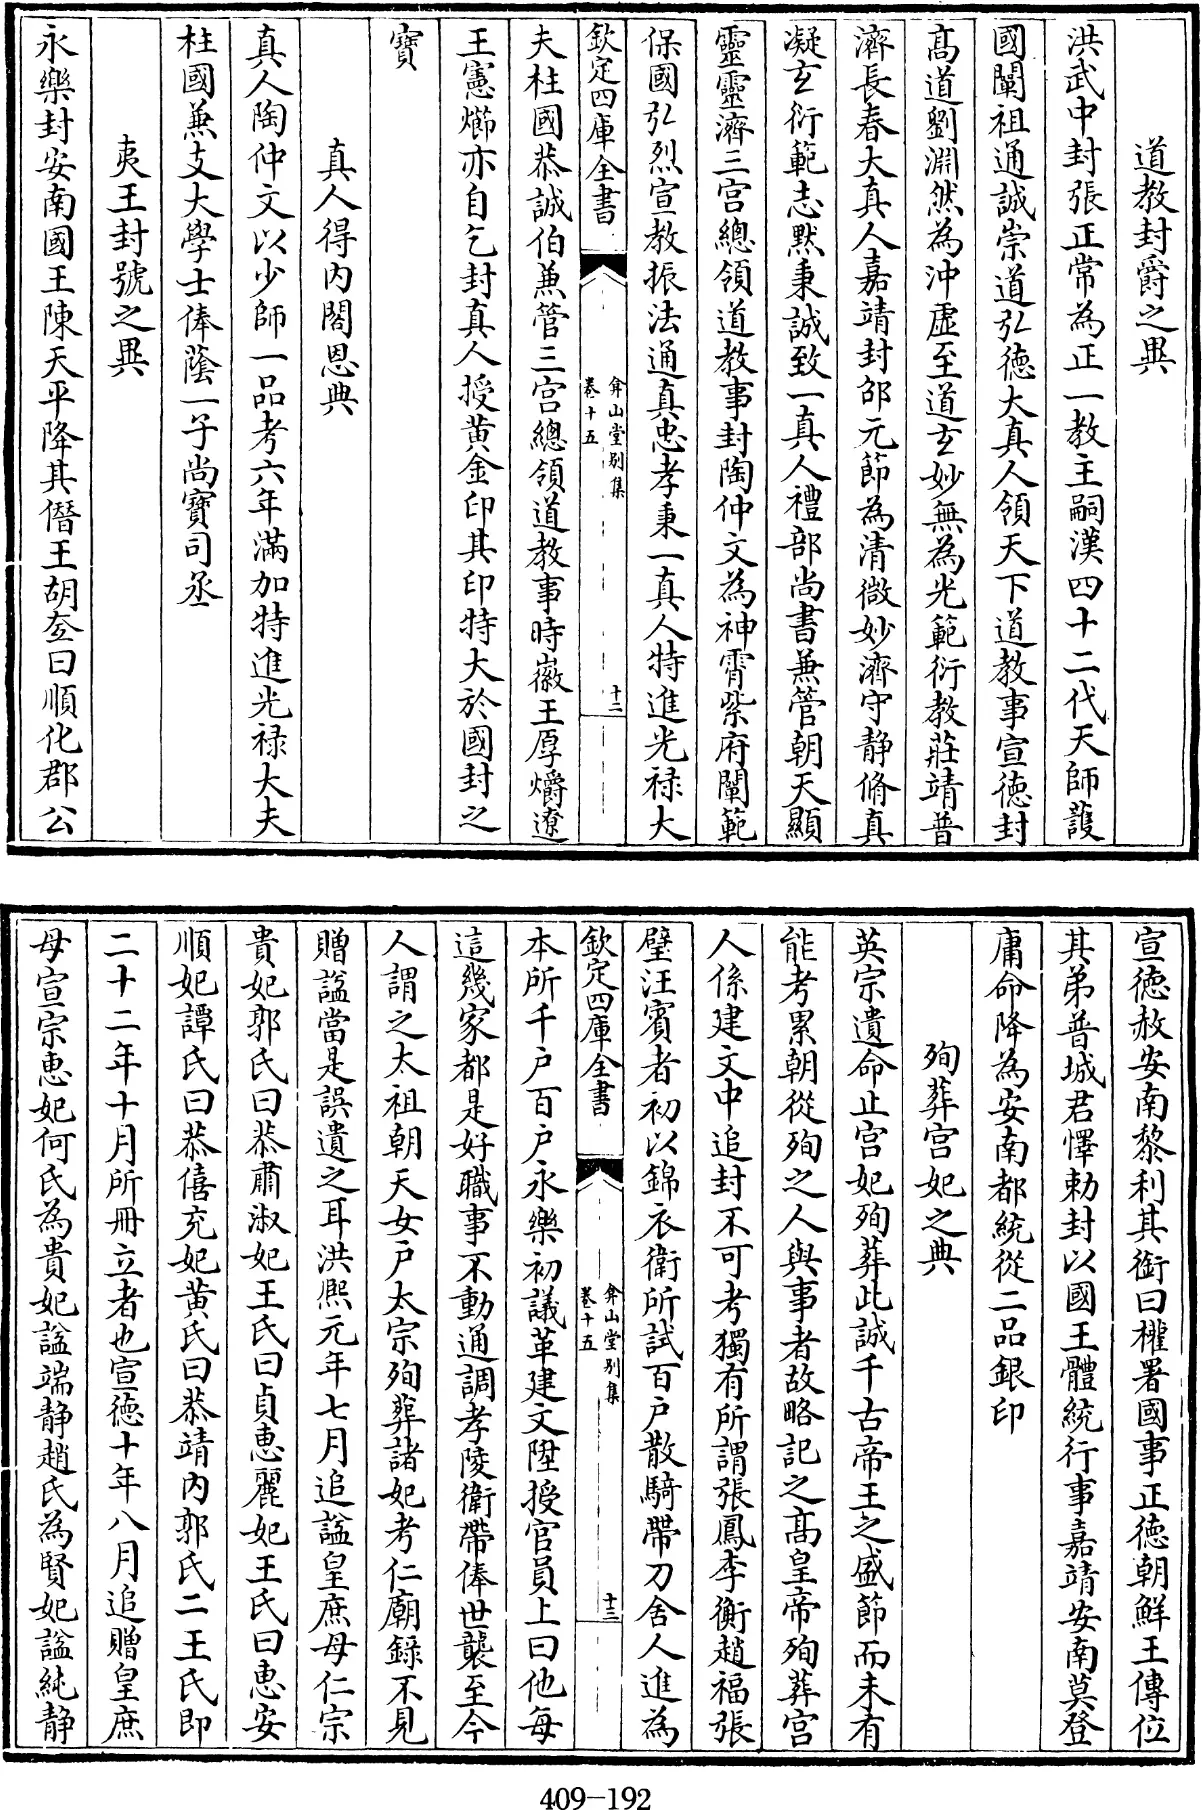 道教封爵之異
洪武中封張正常為正一教主嗣漢四十二代天師護
國闡祖通誠崇道弘德大真人領天下道教事宣德封
高道劉淵然為沖虛至道玄妙無為光範衍教莊靖普
濟長春大真人嘉靖封邵元節為清微妙濟守靜脩真
凝玄衍範志默秉誠致一真人禮部尚書兼管朝天顯
靈靈濟三宮總領道教事封陶仲文為神霄紫府闡範
保國弘烈宣教振法通真忠孝秉一真人特進光祿大
欽定四庫全書
弇山堂別集
卷十五
十二
夫柱國恭誠伯兼管三宮總領道教事時徽王厚爝遼
王憲㸅亦自乞封真人授黃金印其印特大於國封之
寶
真人得內閣恩典
真人陶仲文以少師一品考六年滿加特進光祿大夫
柱國兼支大學士俸蔭一子尚寶司丞
夷王封號之異
永樂封安南國王陳天平降其僭王胡𡗨曰順化郡公
宣德赦安南黎利其銜曰權署國事正德朝鮮王傳位
其弟晉城君懌勅封以國王體統行事嘉靖安南莫登
庸命降為安南都統從二品銀印
殉葬宮妃之典
英宗遺命止宮妃殉葬此誠千古帝王之盛節而未有
能考累朝從殉之人與事者故略記之高皇帝殉葬宮
人係建文中追封不可考獨有所謂張鳳李衡趙福張
璧汪賓者初以錦衣衛所試百戶散騎帶刀舍人進為
欽定四庫全書
弇山堂別集
卷十五
十三
本所千戶百戶永樂初議革建文陞授官員上曰他每
這幾家都是好職事不動通調孝陵衛帶俸世襲至今
人謂之太祖朝天女戶太宗殉葬諸妃考仁廟錄不見
贈謚當是誤遺之耳洪熙元年七月追謚皇庶母仁宗
貴妃郭氏曰恭肅淑妃王氏曰貞惠麗妃王氏曰惠安
順妃譚氏曰恭僖充妃黃氏曰恭靖內郭氏二王氏即
二十二年十月所冊立者也宣德十年八月追贈皇庶
母宣宗惠妃何氏為貴妃謚端靜趙氏為賢妃謚純靜
409-192